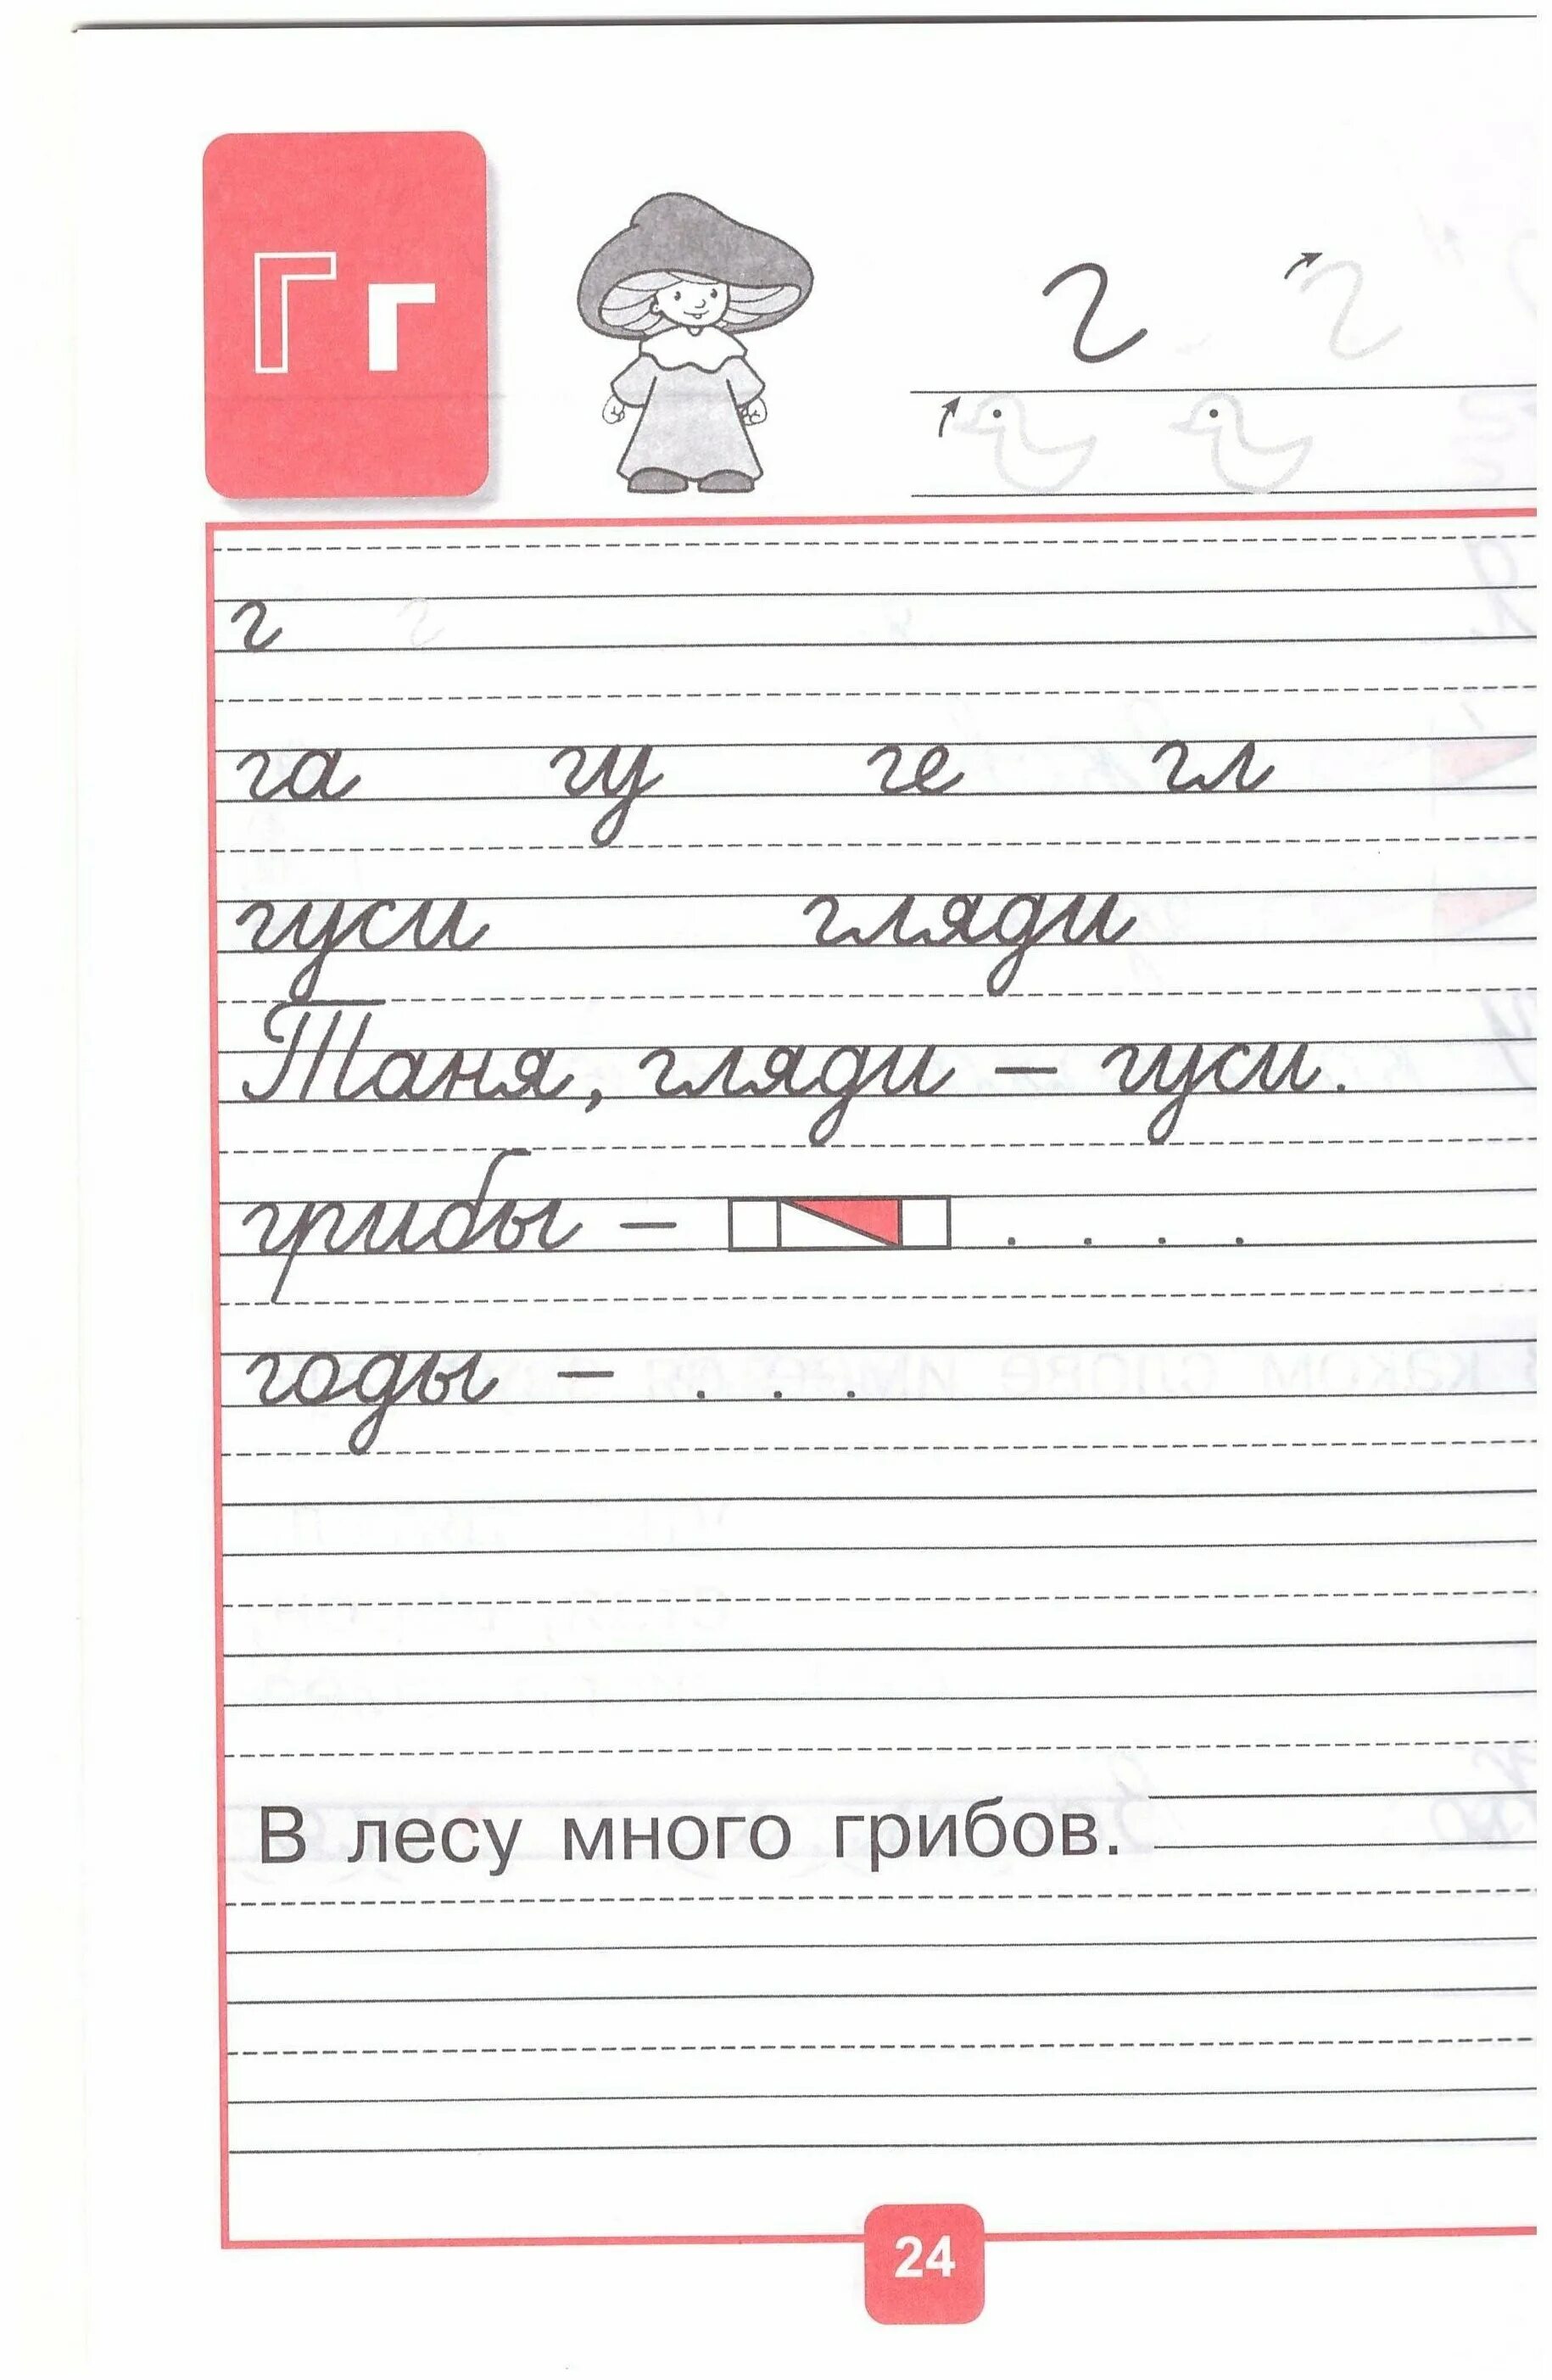 Гг
г г
г г
га гу ге гл
гуси гляди
Таня, гляди – гуси.
грибы – . . . .
годы – . . .
В лесу много грибов.
24